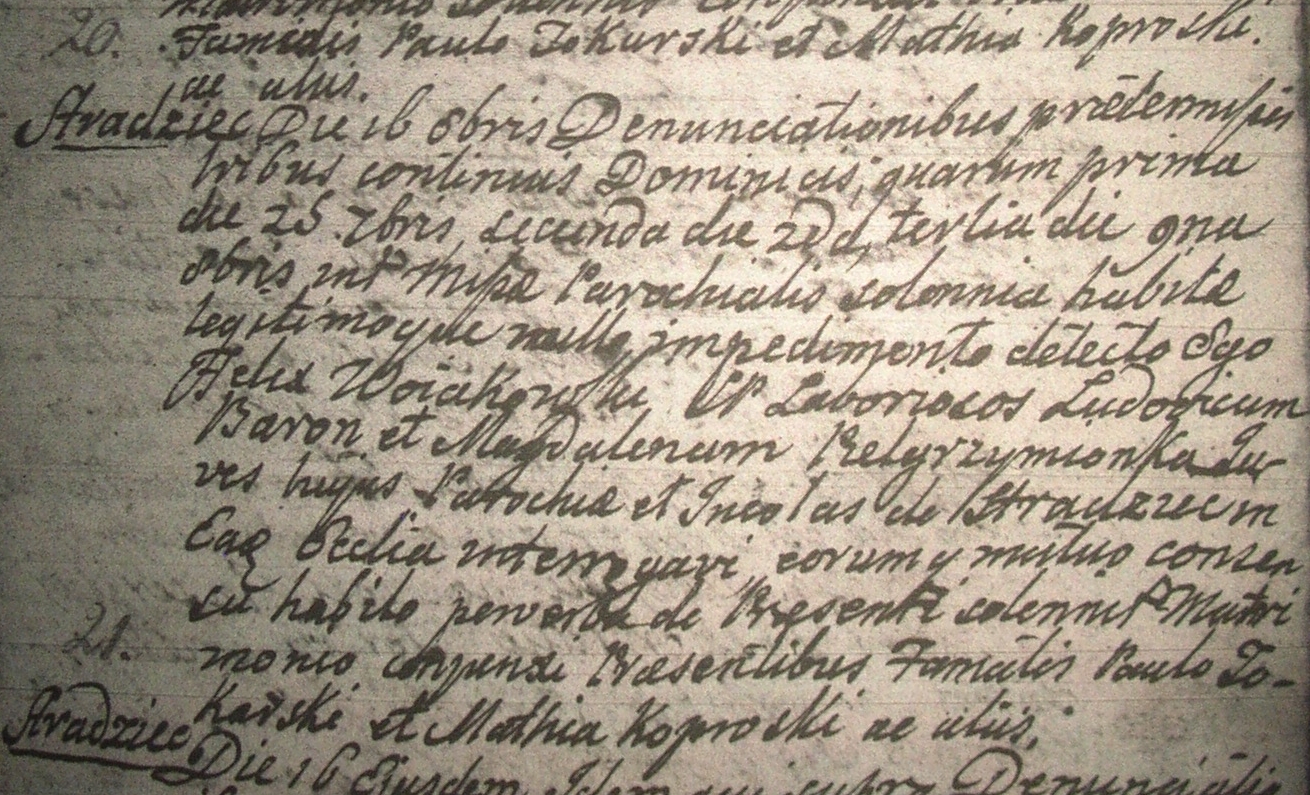 Matrimonio Solenniter conjunxi
20. Famatis Paulo Tokarski et Mathia Koproski.
ac aliis.
Stradziec Die 16 8bris Denunciationibus prætermissis
tribus continuis Dominicis, quarum prima
die 25. 7bris, secunda die 2da, tertia die 9na
8bris intr Missæ Parochialis solennia habitæ
legitimoque nullo impedimento detecto Ego
Felix Woiakowski CP Laboriosos Ludovicum
Baron et Magdalenam Pielgrzymionka Ju-
ves hujus Parochiæ et Incolas de Stradziec in
Eaq Ecclia interrogavi eorumq mutuo consen
su habito per verba de Præsenti solennitr Matri
21. monio conjunxi Præsentibus Famatis Paulo To-
karski et Mathia Koproski ac aliis.
Stradziec Die 16 Ejusdem Idem qui supra Denunciatio